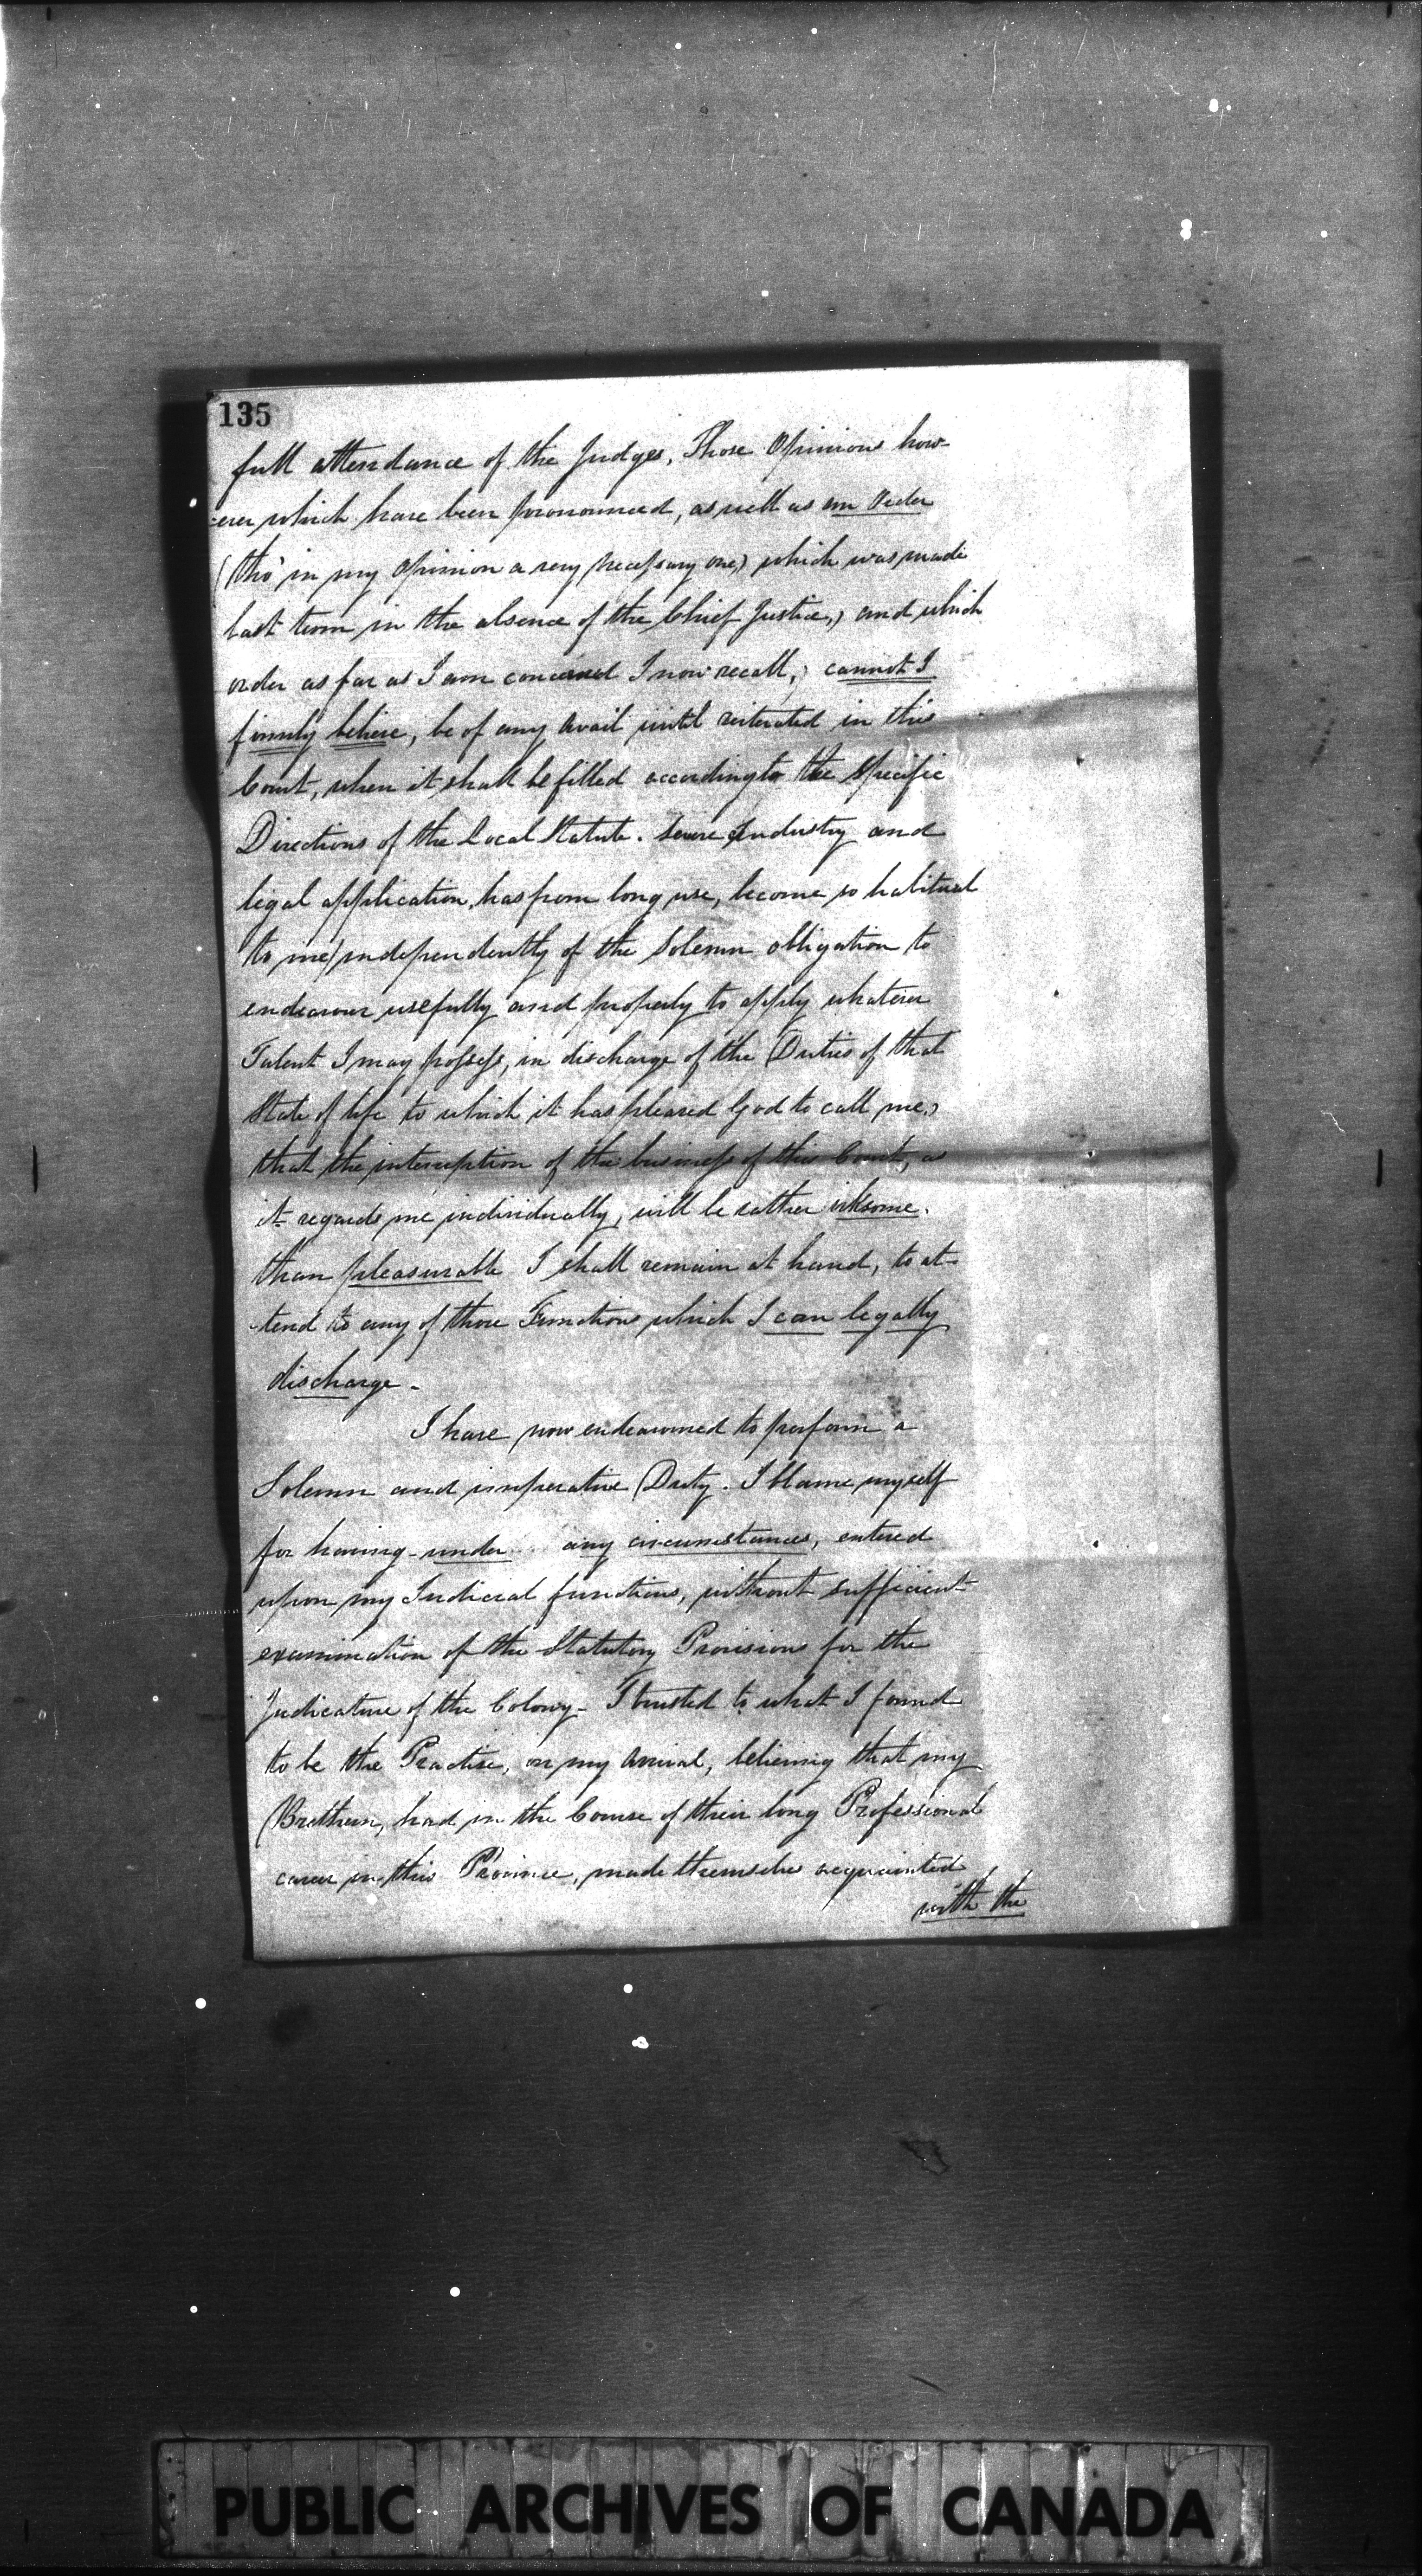 135
full attendance of the Judges, Those Opinions how-
-ever which have been pronounced, as well as an Order
(tho' in my Opinion a very necessary one,) which was made
last term in the absence of the Chief Justice,) and which
order as far as I am concerned I now recall, cannot I
firmly believe, be of any avail until reiterated in this
Court, when it shall be filled according to the specific
Directions of the Local Statute. Severe Industry and
legal application, has from long use, become so habitual
to me, independently of the Solemn obligation to
endeavour usefully and properly to apply whatever
Talent I may possess, in discharge of the Duties of that
State of life to which it has pleased God to call me,)
that the interruption of the business of this Court, as
it regards me individually, will be rather irksome.
than pleasurable I shall remain at hand, to at-
-tend to any of those Functions which I can legally
discharge.
I have now endeavoured to perform a
Solemn and imperative Duty. I blame myself
for having under any circumstances, entered
upon my Judicial functions, without sufficient
examination of the Statutory Provisions for the
Judicature of the Colony - I trusted to what I found
to be the Practise, on my Arrival, believing that my
Brethren, had in the Course of their long Professional
career in this Province, made themselves acquainted
with the
PUBLIC ARCHIVES OF CANADA